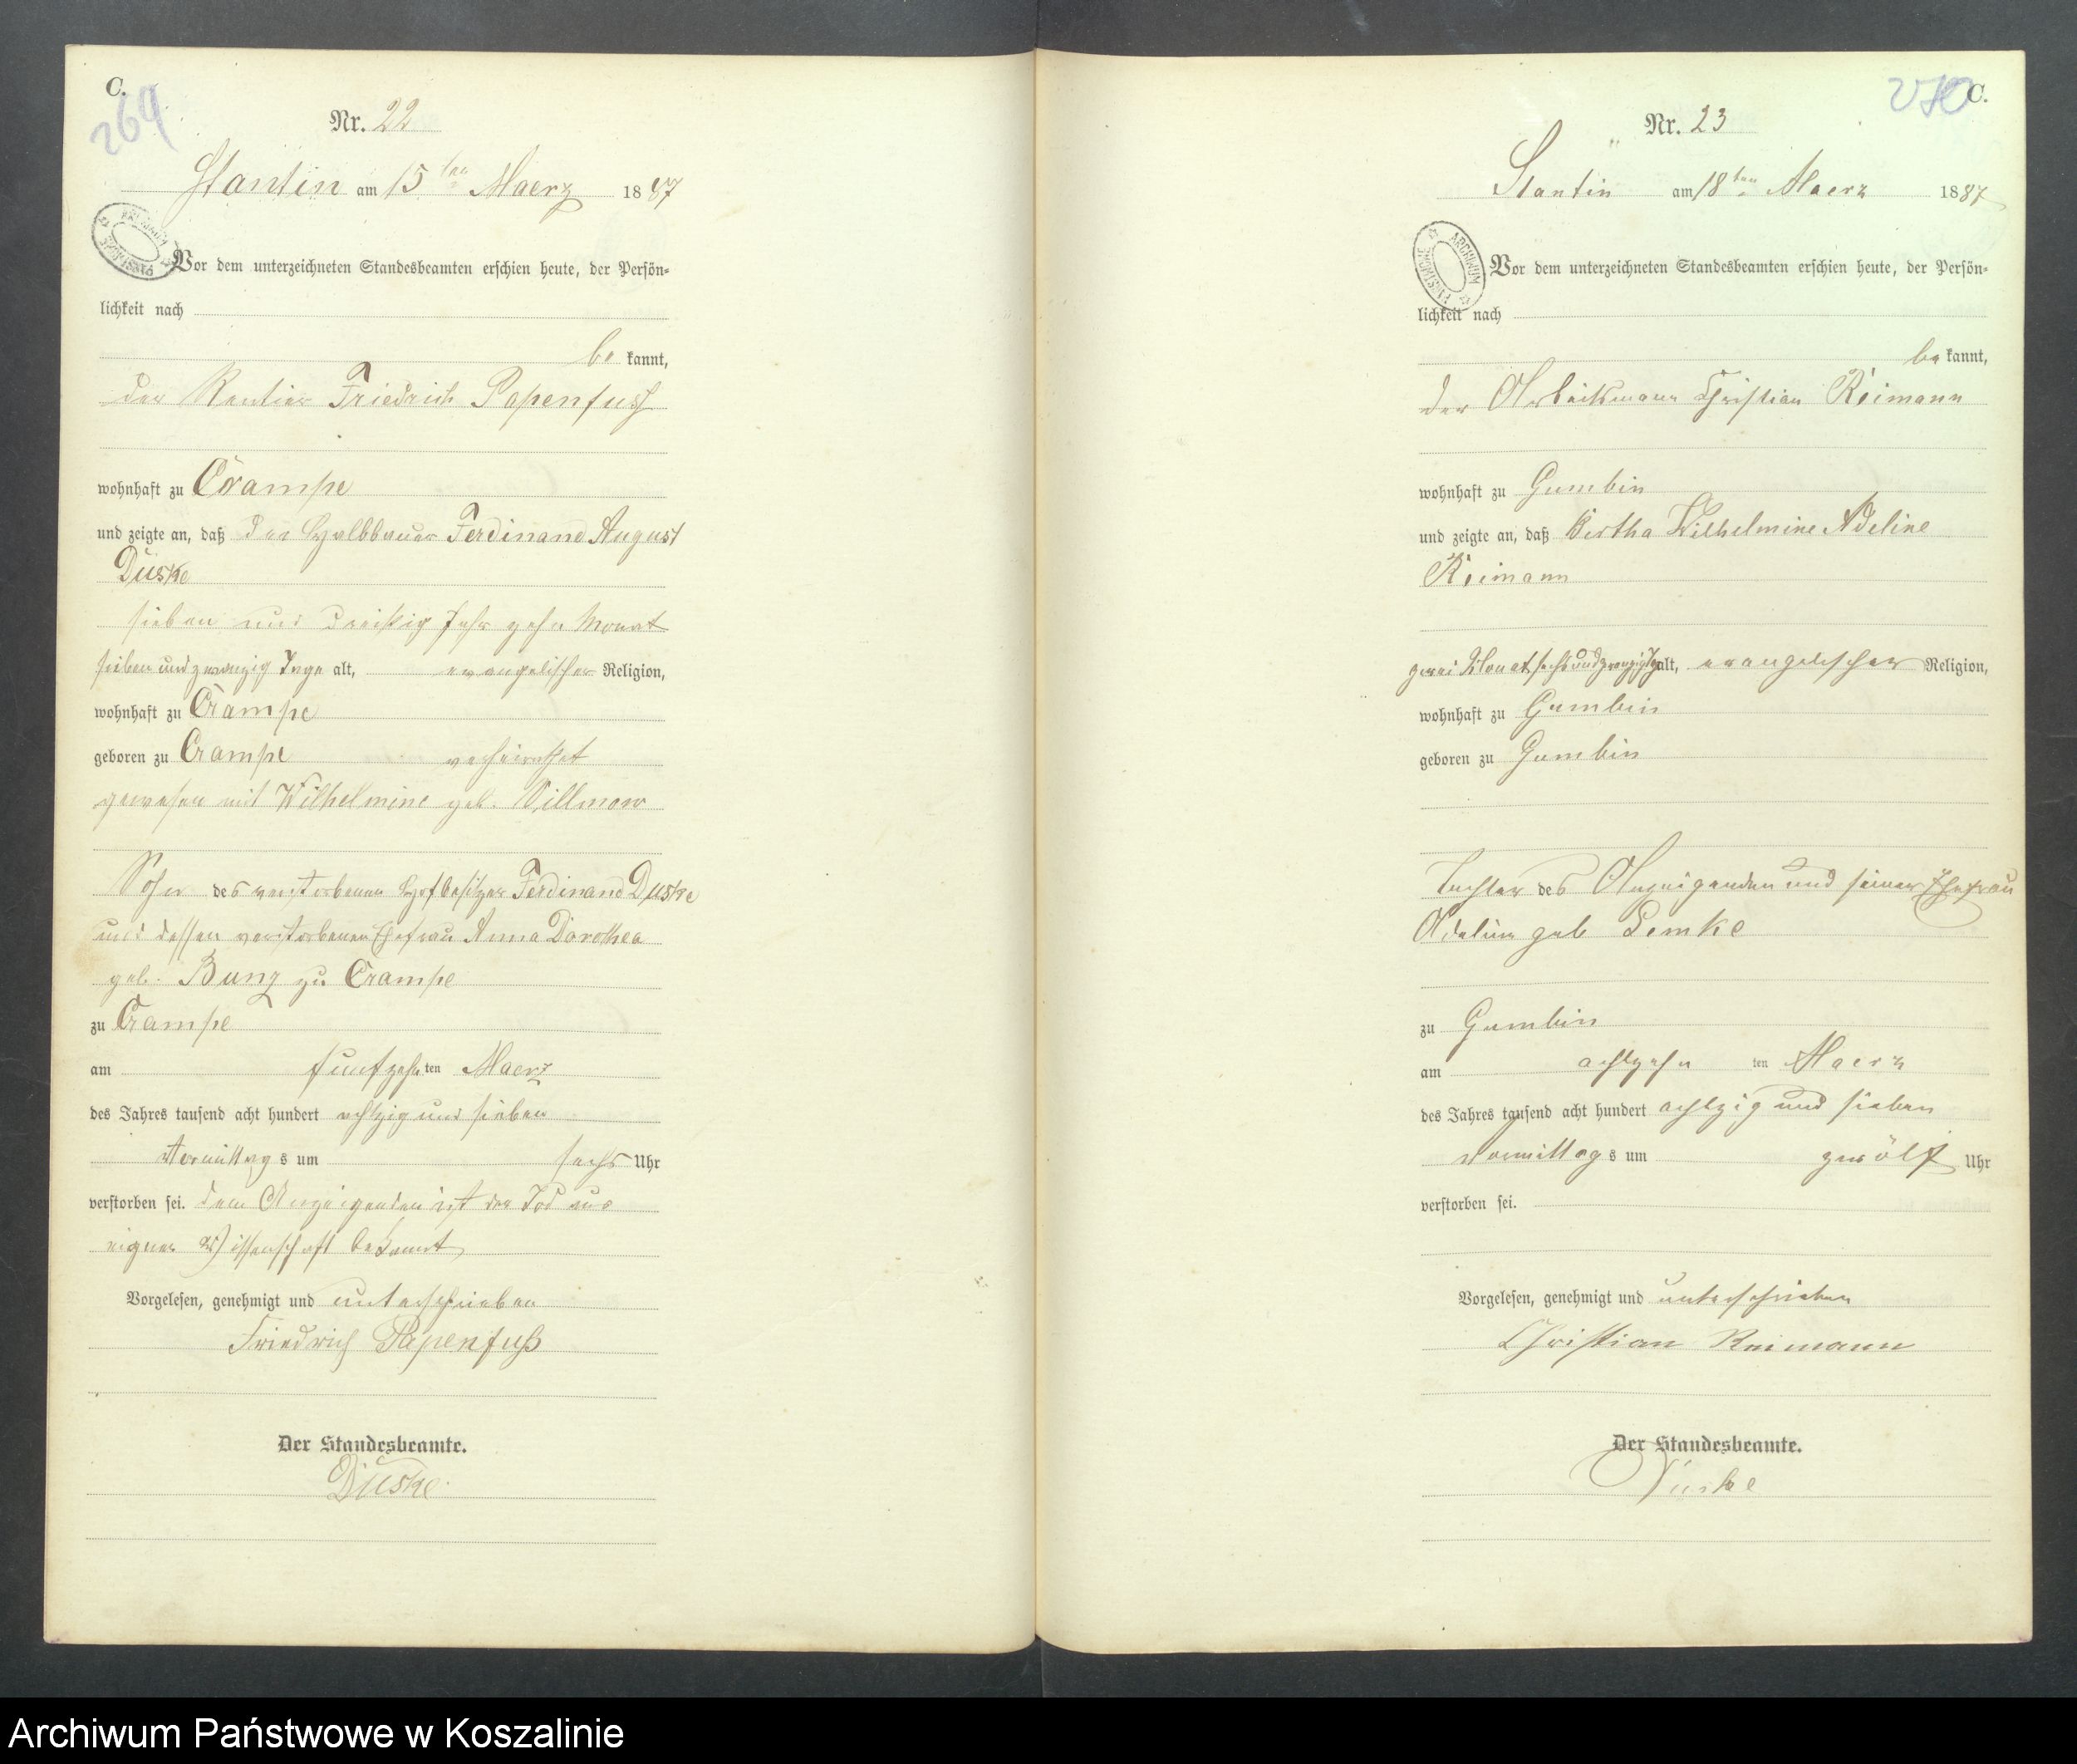 C.
269
Nr. 22
Stantin am 15ten Maerz 1887
Vor dem unterzeichneten Standesbeamten erschien heute, der Persön-
lichkeit nach
be kannt,
der Rentier Friedrich Papenfuss
wohnhaft zu Crampe
und zeigte an, daß der Halbbauer Ferdinand August
Düske
sieben und dreißig Jahr zehn Monat
sieben und zwanzig Tage alt, evangelischer Religion,
wohnhaft zu Crampe
geboren zu Crampe verheirathet
gewesen mit Wilhelmine geb. Villmow
Sohn des verstorbenen Hofbesitzer Ferdinand Duske
und dessen verstorbenen Ehefrau Anna Dorothea
geb. Bunz zu Crampe
zu Crampe
am fünfzehnten Maerz
des Jahres tausend acht hundert achtzig und sieben
Vormittags um sechs Uhr
verstorben sei. dem Anzeigenden ist der Tod aus
eigner Wissenschaft bekannt
Vorgelesen, genehmigt und unterschrieben
Friedrich Papenfuß
Der Standesbeamte.
Düske.
C.
270
Nr. 23
Stantin am 18ten Maerz 1887
ARCHIWUM PAŃSTWOWE
Vor dem unterzeichneten Standesbeamten erschien heute, der Persön-
lichkeit nach
be kannt,
der Arbeitsmann Christian Reimann
wohnhaft zu Gumbin
und zeigte an, daß Bertha Wilhelmine Adeline
Reimann
zwei Monat sechs und zwanzig Tg alt, evangelischer Religion,
wohnhaft zu Gumbin
geboren zu Gumbin
Tochter des Anzeigenden und seiner Ehefrau
Adeline geb Lemke
zu Gumbin
am achtzehn ten Maerz
des Jahres tausend acht hundert achtzig und sieben
Vormittags um zwölf Uhr
verstorben sei.
Vorgelesen, genehmigt und unterschrieben
Christian Reimann
Der Standesbeamte.
Düske
Archiwum Państwowe w Koszalinie